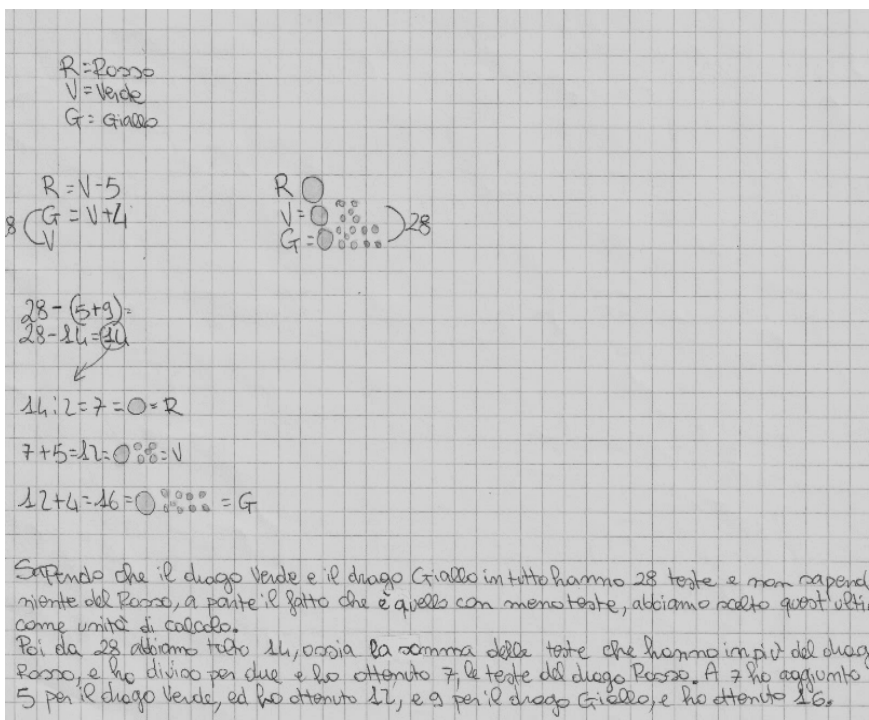 R=Rosso
V=Verde
G=Giallo
R=V-5
8 G=V+4
V
R
V=
G= 28
28-(5+9)=
28-14=14
14:2=7= =R
7+5=12= =V
12+4=16= =G
Sapendo che il drago Verde e il drago Giallo in tutto hanno 28 teste e non sapend
niente del Rosso, a parte il fatto che è quello con meno teste, abbiamo scelto quest'ulti
come unità di calcolo.
Poi da 28 abbiamo tolto 14, ossia la somma delle teste che hanno in più del drag
Rosso, e ho diviso per due e ho ottenuto 7, le teste del drago Rosso. A 7 ho aggiunto
5 per il drago Verde, ed ho ottenuto 12, e 9 per il drago Giallo, e ho ottenuto 16.